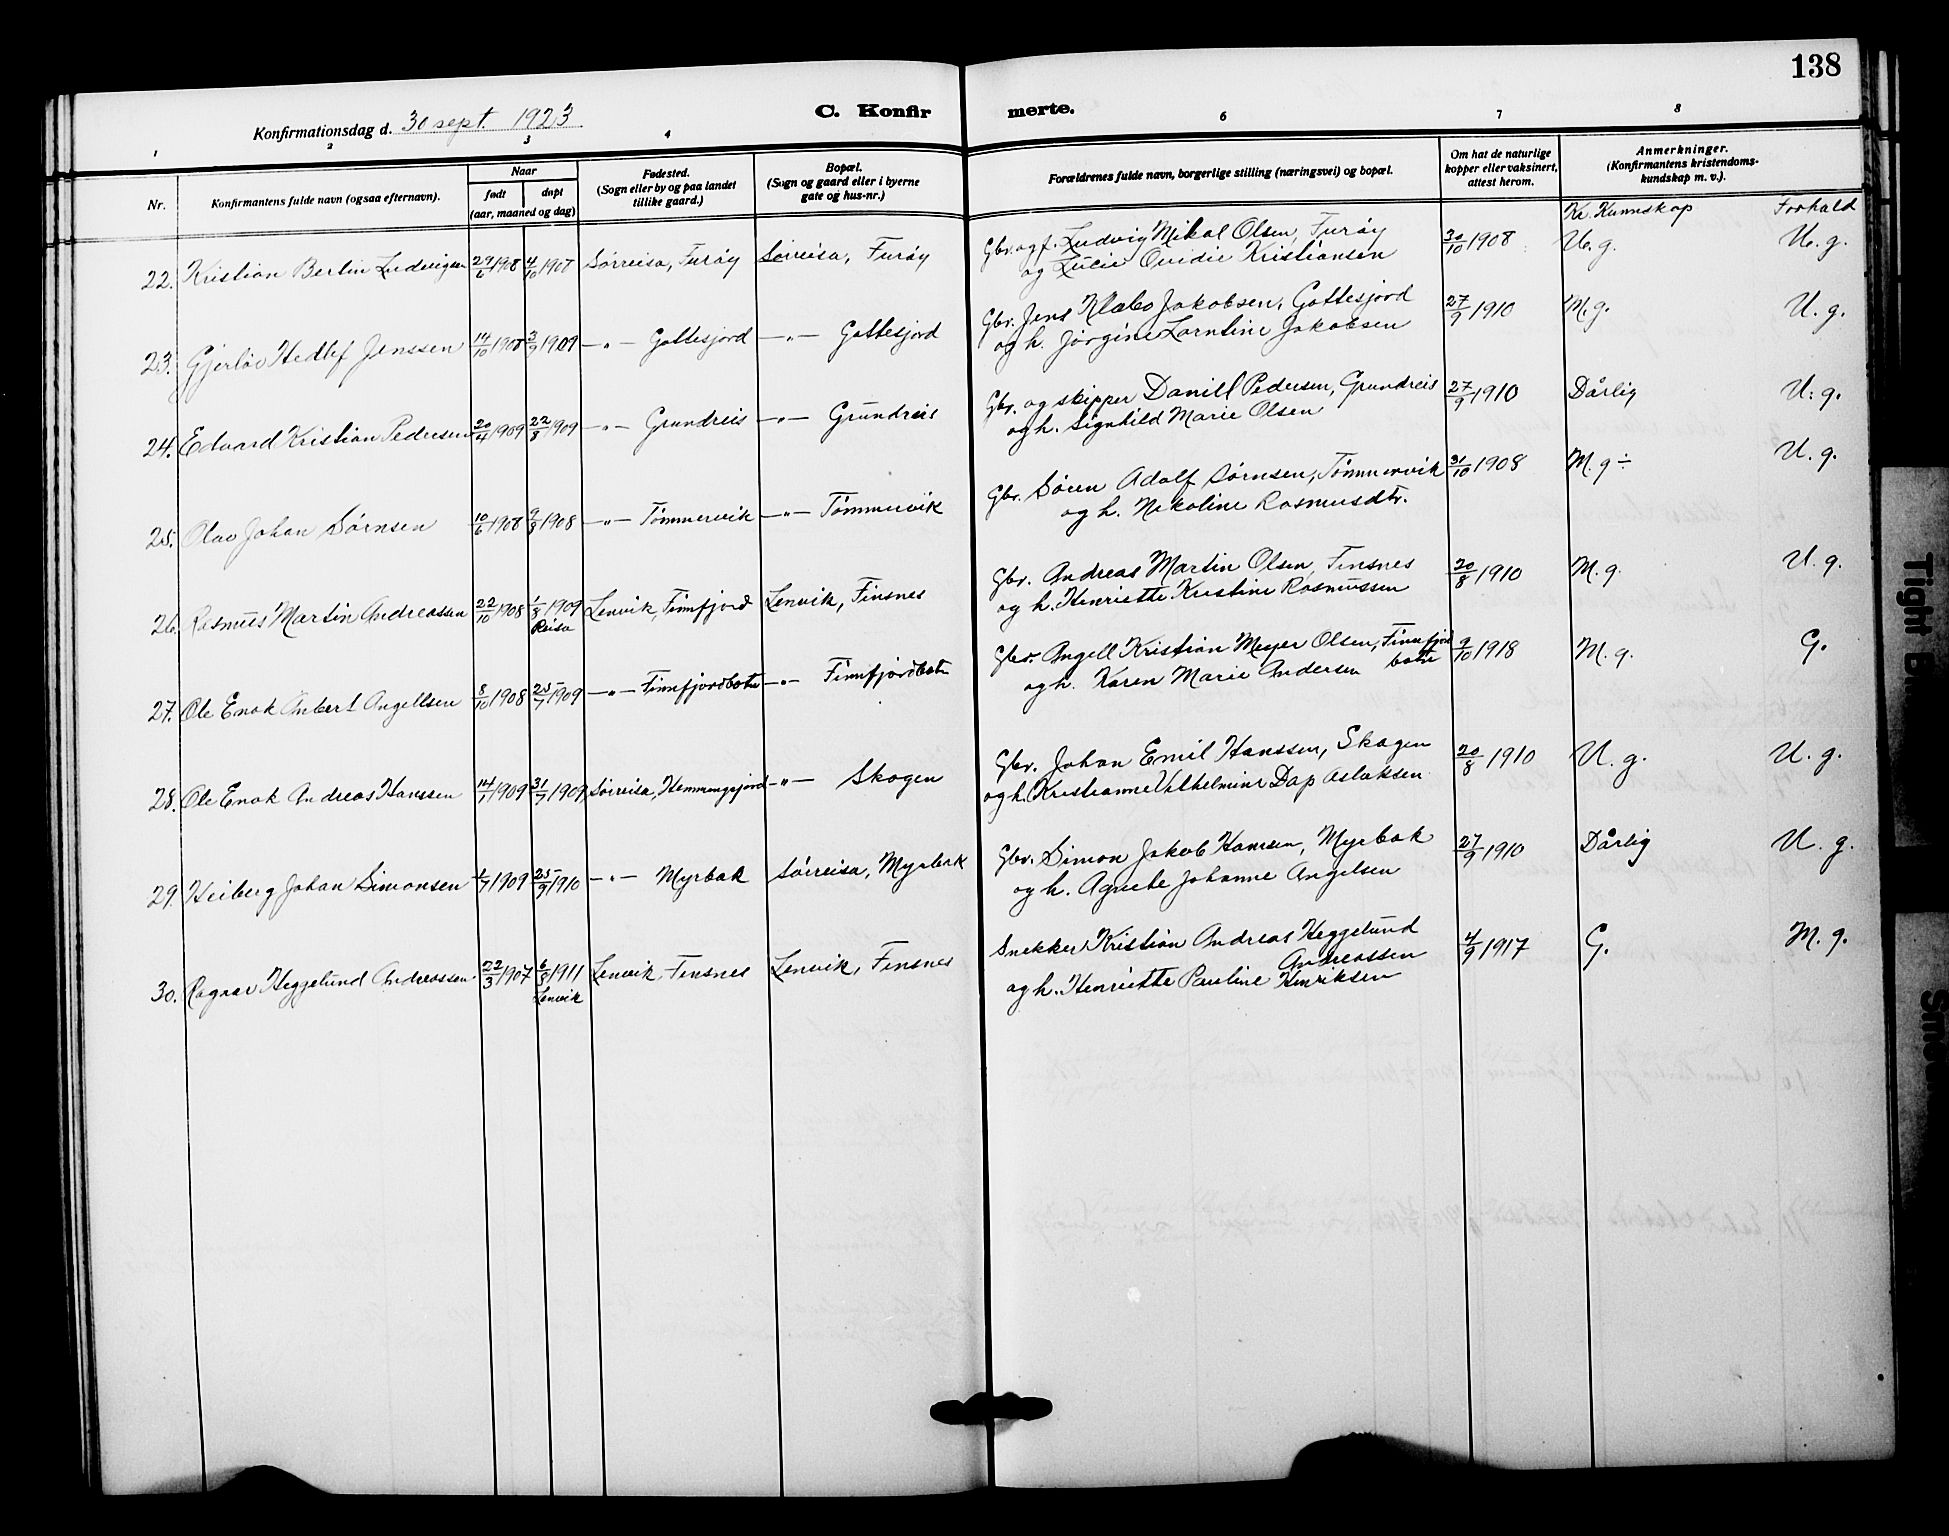 138
Konfirmationsdag d. 30 sept. 1923
C. Konfir merte.
1 2 3 4 6 7 8
Nr.
Konfirmantens fulde navn (ogsaa efternavn).
Naar
født døpt
(aar, maaned og dag)
Fødested.
(Sogn eller by og paa landet
tillike gaard.)
Bopæl.
(Sogn og gaard eller i byerne
gate og hus-nr.)
Forældrenes fulde navn, borgerlige stilling (næringsvei) og bopæl.
Om hat de naturlige
kopper eller vaksinert,
attest herom.
Anmerkninger.
(Konfirmantens kristendoms-
kundskap m. v.).
Kr. Kunnskap Forhold
Gbr. og f. Ludvig Nikal Olsen, Furøy 30/10 1908 U. g. U. g.
22. Kristian Berlin Ludvigsen /6 1908 4/10 1908 Sørreisa, Furøy Sørreisa, Furøy
og Lucie Ovidie Kristiansen
Gbr. Jens Klæbo Jakobsen, Gottesjord 27/9 1910 M. g. U. g.
23. Gjerløv Hedlef Jenssen 14/10 1908 3/9 1909 -"- Gottesjord -"- Gottesjord
og h. Jørgine Larntine Jakobsen
Gbr. og skipper Daniel Pedersen, Grundreis 27/9 1910 Dårlig U. g.
24. Edvard Kristian Pedersen 20/4 1909 22/8 1909 -"- Grundreis -"- Grundreis
og h. Signhild Marie Olsen
Gbr. Søren Adolf Sørnsen, Tømmervik 31/10 1908 M. g ÷ U. g.
25. Olav Johan Sørnsen 10/6 1908 9/8 1908 -"- Tømmervik -"- Tømmervik
og h. Nikoline Rasmusdtr.
Gbr. Andreas Martin Olsen, Finsnes 20/8 1910 M. g. U. g.
26. Rasmus Martin Andreassen 22/10 1908 1/8 1909 Reisa Lenvik, Finnfjord Lenvik, Finsnes
og h. Henriette Kristine Rasmussen
Gbr. Angell Kristian Meyer Olsen, Finnfjord botn 9/10 1918 M. g. G.
27. Ole Enok Anbert Angellsen 8/10 1908 25/7 1909 -"- Finnfjordbotn -"- Finnfjordbotn
og h. Karen Marie Andersen
Gbr. Johan Emil Hanssen, Skogen 20/8 1910 U. g. U. g.
28. Ole Enok Andreas Hanssen 14/1 1909 31/7 1909 Sørreisa, Hemmingsjord -"- Skogen
og h. Kristianne Vilhelmine Dap Aslaksen
Gbr. Simon Jakob Hansen, Myrbak 27/9 1910 Dårlig U. g.
29. Heiberg Johan Simonsen /7 1909 25/9 1910 -"- Myrbak Sørreisa, Myrbak
og h. Agnete Johanne Angelsen
Snekker Kristian Andreas Heggelund Andreassen 4/9 1917 G. M. g.
30. Ragnar Heggelund Andreassen 22/3 1907 6/8 1911 Lenvik Lenvik, Finsnes Lenvik, Finsnes
og h. Henriette Pauline Henriksen
Tight